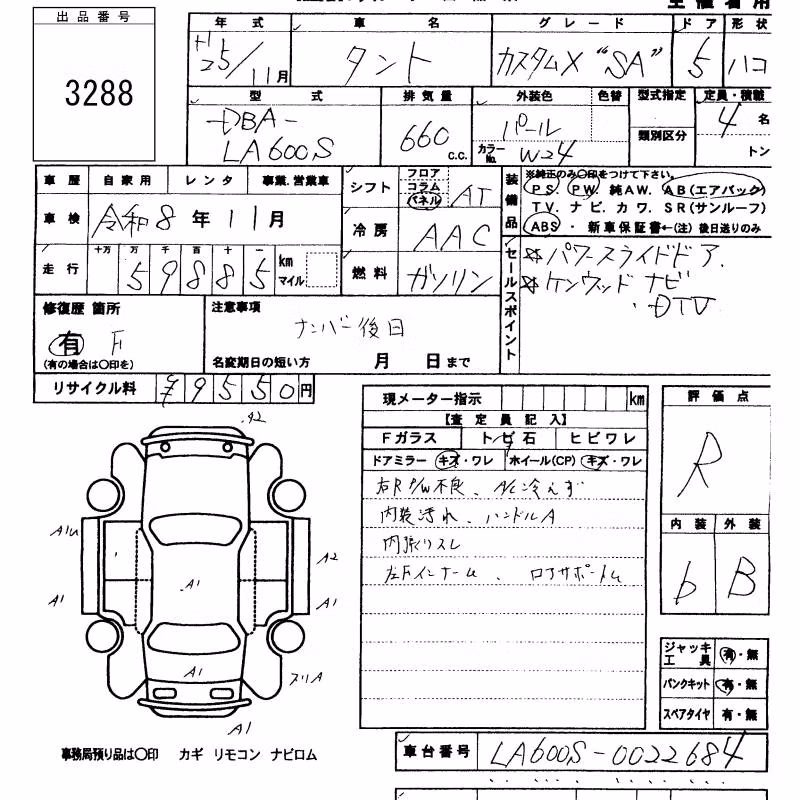 出品番号
3288
年式 車名 グレード ドア 形状
H25/11月 タント カスタムX "SA" 5 ハコ
型式 排気量 外装色 色替 型式指定 定員・積載
DBA- 660 c.c. パール 4名
LA600S カラーNo. W24 類別区分 トン
車歴 自家用 レンタ 事業.営業車
車検 令和8年11月
走行 十万 万 千 百 十 一
59885 km マイル
シフト フロア コラム パネル AT
冷房 AAC
燃料 ガソリン
装備品
※純正のみ〇印をつけて下さい。
PS. PW. 純AW. AB(エアバック)
TV. ナビ. カワ. SR(サンルーフ)
ABS ・ 新車保証書←(注) 後日送りのみ
セールスポイント
☆パワースライドドア.
☆ケンウッドナビ
・DTV
修復歴 箇所
有 F
(有の場合は〇印を)
注意事項
ナンバー後日
名変期日の短い方 月 日まで
リサイクル料 ¥9550円
現メーター指示 km
【査定員記入】
Fガラス トビ石 ヒビワレ
ドアミラー キズ・ワレ ホイール(CP) キズ・ワレ
右R P/W不良、A/C冷えず
内装汚れ、ハンドルA
内張リスレ
左Fインナー
評価点
R
内装 外装
b B
ジャッキ工具 有・無
パンクキット 有・無
スペアタイヤ 有・無
A1
A1
A2
A1
A1
A1
A1
事務局預り品は〇印 カギ リモコン ナビロム
車台番号 LA600S-0022684